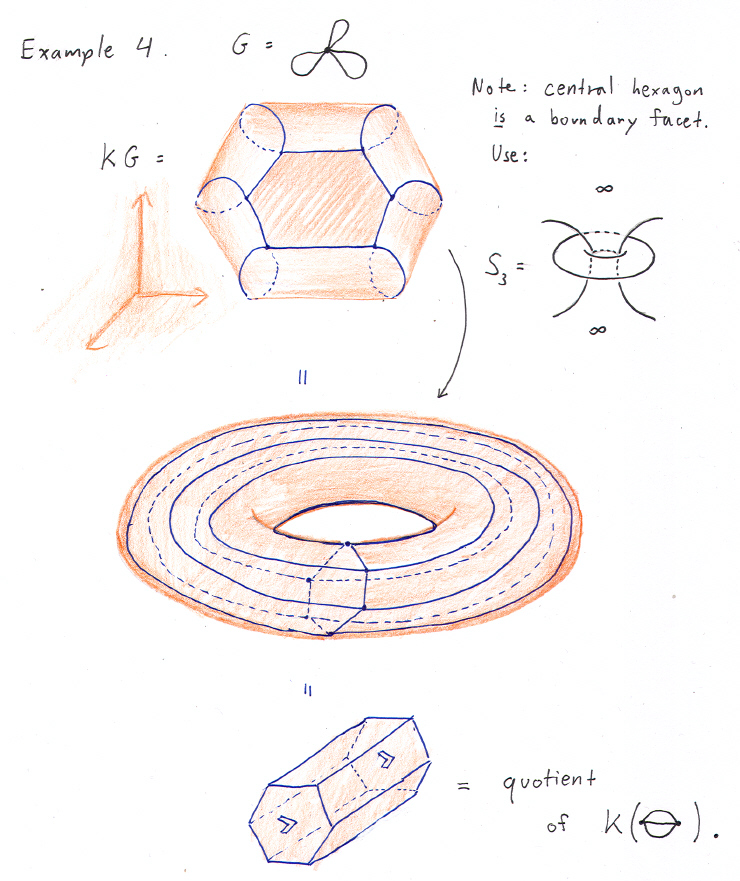 Example 4.
G =
Note: central hexagon
is a boundary facet.
Use:
KG =
∞
S₃ =
∞
=
=
= quotient
of K( ).